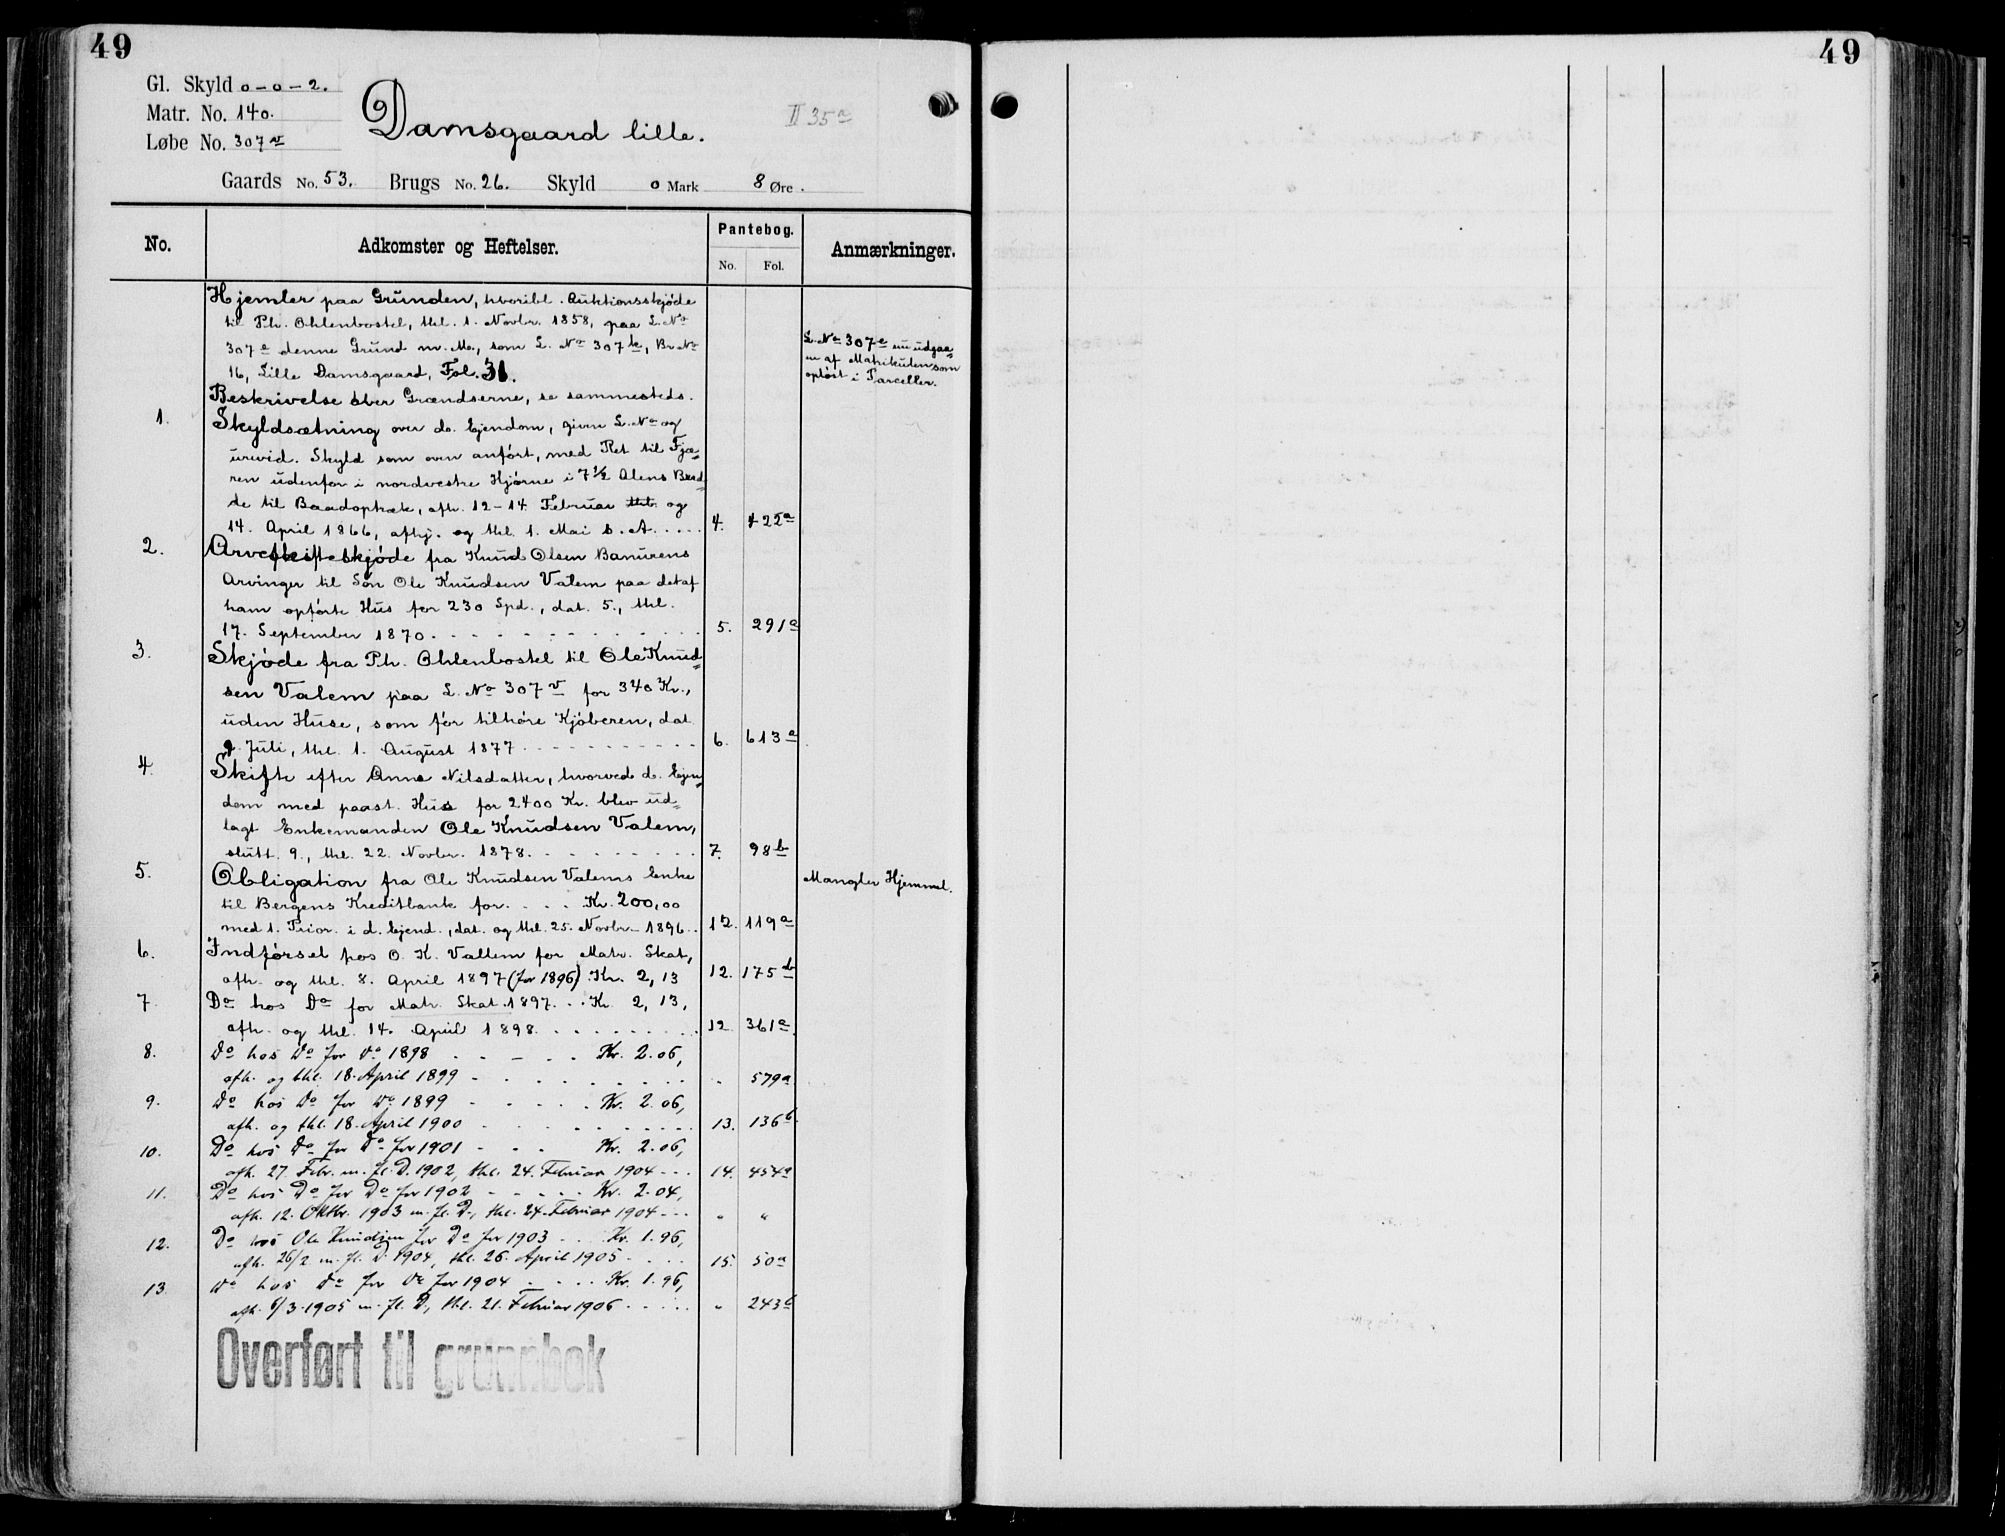 49
49
Gl. Skyld 0-0-2.
Matr. No. 140.
Løbe No. 307 v
Damsgaard lille.
II 35a
Gaards No. 53. Brugs No. 26. Skyld 0 Mark 8 Øre.
No. Adkomster og Heftelser. Pantebog. No. Fol. Anmærkninger.
Hjemler paa Grunden, hvoribl. Auktionsskjøde
til Ph. Ohlenbostel, thl. 1. Novbr. 1858, paa L. No
307 a denne Grund m. M., som L. No 307 k, Br No
16, Lille Damsgaard, Fol. 31.
L. No 307 a nu udgaa=
en af Matrikulen som
opløst i Parceller.
Beskrivelse over Grændserne, se sammesteds.
1. Skyldsætning over ds. Ejendom, given L. No og
urevid. Skyld som oven anført, med Ret til Fjæ=
ren udenfor i nordvestre Hjørne i 7 1/2 Alens Bred=
de til Baadoptræk, afh. 12-14 Februar thl. og
14. April 1866, afhj. og thl. 1. Mai s. A. .... 4. 422a
2. Arvefæsteskjøde fra Knud Olsen Banurens
Arvinger til Søn Ole Knudsen Valem paa det af
ham opførte Hus for 230 Spd., dat. 5., thl.
17. September 1870. 5. 291a
3. Skjøde fra Ph. Ohlenbostel til Ole Knud=
sen Valem paa L. No 307 v for 340 Kr.,
uden Huse, som før tilhøre Kjøberen, dat.
9. Juli, thl. 1. August 1877 6. 613a
4. Skifte efter Anna Nilsdatter, hvorved ds. Ejen=
dom med paast. Hus for 2400 Kr. blev ud=
lagt Enkemanden Ole Knudsen Valem,
slutt. 9., thl. 22. Novbr. 1878. 7. 98b
5. Obligation fra Ole Knudsen Valems Enke Mangler Hjemmel.
til Bergens Kreditbank for. . . . Kr. 200,00
med 1. Prior. i d. Ejend., dat. og thl. 25. Novbr. 1896. 12. 119a
6. Indførsel hos O. K. Vallem for Matr. Skat,
afh. og thl. 8. April 1897 (for 1896) Kr. 2,13 12. 175b
7. Do hos Do for Matr. Skat 1897. . . Kr. 2,13,
afh. og thl. 14. April 1898. 12 361a
8. Do hos Do for Do 1898 Kr. 2.06,
afh. og thl. 18. April 1899 - 579a
9. Do hos Do for Do 1899 Kr. 2.06,
afh. og thl. 18. April 1900 13. 136b
10. Do hos Do for Do for 1901 Kr. 2.06,
afh. 27. Febr. m. fl. D. 1902, thl. 24. Februar 1904 14. 454a
11. Do hos Do for Do for 1902 Kr. 2.04,
afh. 12. Oktbr. 1903 m. fl. D., thl. 24. Februar 1904 " "
12. Do hos Ole Knudsen for Do for 1903 Kr. 1.96,
afh. 26/2 m. fl. D. 1904, thl. 26. April 1905 15. 50a
13. Do hos Do for Do for 1904 Kr. 1.96,
afh. 6/3 1905 m. fl. D, thl. 21. Februar 1906 " 243b
Overført til grunnbok